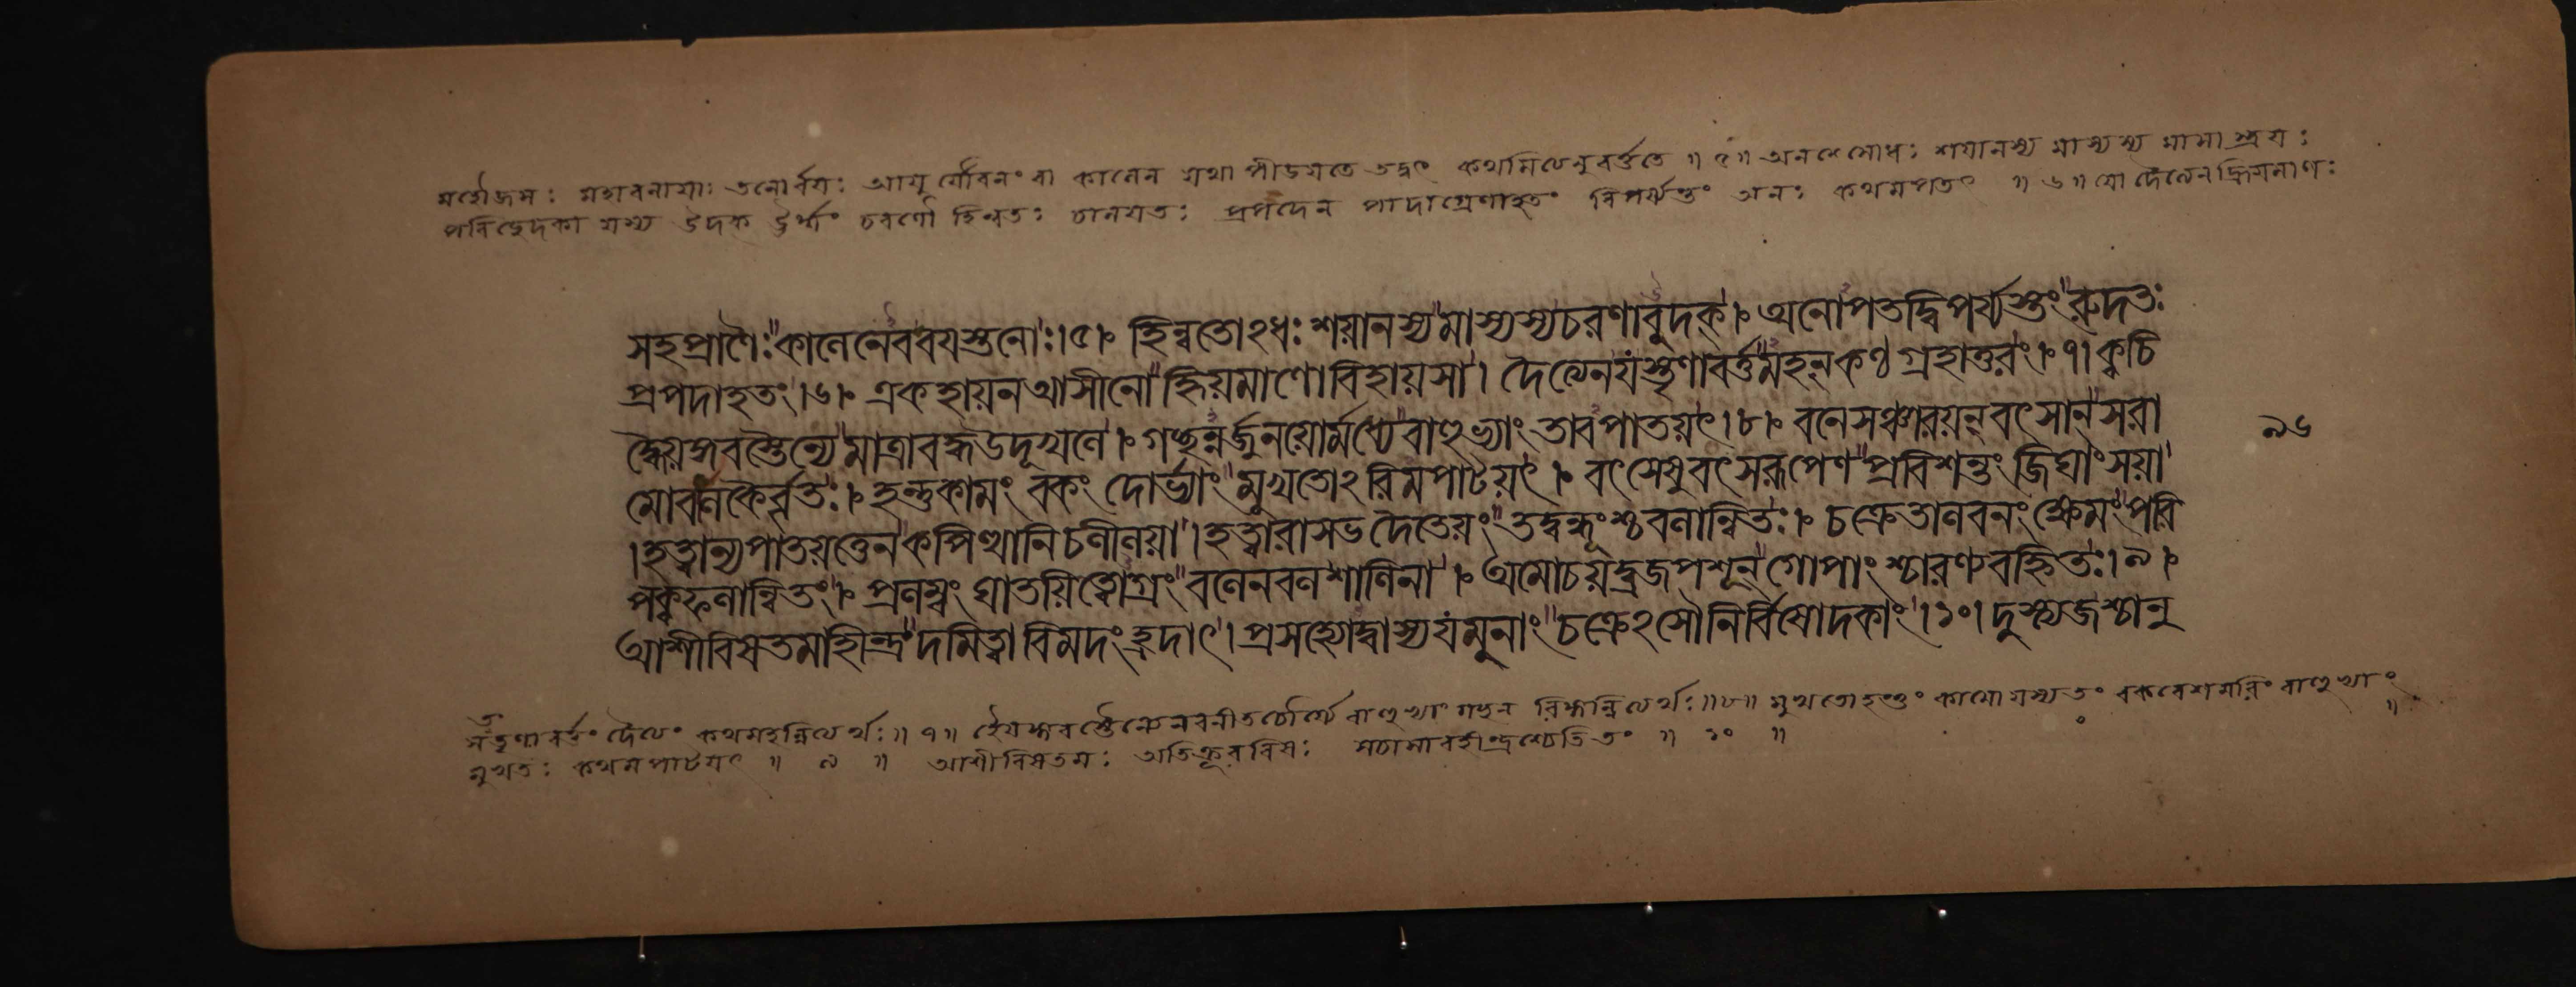 মহৌজসঃ মহাবলায়াঃ তনোর্বয়ঃ আয়ুর্যৌবনং বা কালেন যথা পীড্যতে তদ্বৎ কথমিত্যনুবর্ত্ততে ॥ ৫॥ অনসোধঃ শয়ানস্য মাস্যস্য মাসা শ্রয়ঃ
পরিচ্ছেদকা যস্য উদক ঊর্দ্ধ্বং চরণৌ হিন্বতঃ চালয়তঃ প্রপদেন পাদাগ্রেণাহতং বিপর্য্যস্তং অনঃ কথমপতৎ ॥ ৬॥ যো দৈত্যেনহ্রিয়মাণঃ
সহপ্রাণৈঃ কালেনেববয়স্তনোঃ।৫। হিন্বতোঽধঃ শয়ানস্য মাস্যস্যচরণাবুদক্। অনোপতদ্বিপর্য্যস্তং রুদতঃ
প্রপদাহতং।৬। একহায়নআসীনো হ্রিয়মাণোবিহায়সা। দৈত্যেনযস্তৃণাবর্ত্তমহন্কণ্ঠগ্রহাতুরং। ৭। ক্বচি
দ্ধৈয়ঙ্গবস্তৈন্যে মাত্রাবদ্ধউদূখলে। গচ্ছন্নর্জুনয়োর্মধ্যে বাহুভ্যাং তাবপাতয়ৎ।৮। বনেসঞ্চারয়ন্বৎসান্ সরা
মোবালকৈর্বৃতঃ। হন্তুকামং বকং দোর্ভ্যাং মুখতোঽরিমপাটয়ৎ। বৎসেষুবৎসরূপেণ প্রবিশন্তং জিঘাংসয়া
।হত্বান্যপাতয়ত্তেন কপিত্থানিচলীলয়া। হত্বারাসভদৈতেয়ং তদ্বন্ধূংশ্চবলান্বিতঃ। চক্রেতালবনং ক্ষেমং পরি
পক্বফলান্বিতং। প্রলম্বং ঘাতয়িত্বোগ্রং বলেনবলশালিনা। অমোচয়দ্ব্রজপশূন্ গোপাংশ্চারণ্যবহ্নিতঃ।৯।
আশীবিষতমাহীন্দ্রং দমিত্বাবিমদং হ্রদাৎ। প্রসহ্যোদ্বাস্যযমুনাং চক্রেঽসৌনির্বিষোদকাং।১০। দুস্ত্যজশ্চানু
৯৬
তং তৃণাবর্ত্তং দৈত্যং কথমহন্নিত্যর্থঃ॥ ৭॥ হৈয়ঙ্গবস্তৈন্যে নবনীতচৌর্য্যে বাহুভ্যাং গচ্ছন্ রিঙ্গন্নিত্যর্থঃ॥৮॥ মুখতোহন্তুং কামো যস্যতং বকবেশমরিং বাহুভ্যাং
মুখতঃ কথমপাটয়ৎ ॥ ৯ ॥ আশীবিষতমঃ অতিক্রূরবিষঃ সচাসাবহীন্দ্রশ্চেতিতং ॥ ১০ ॥